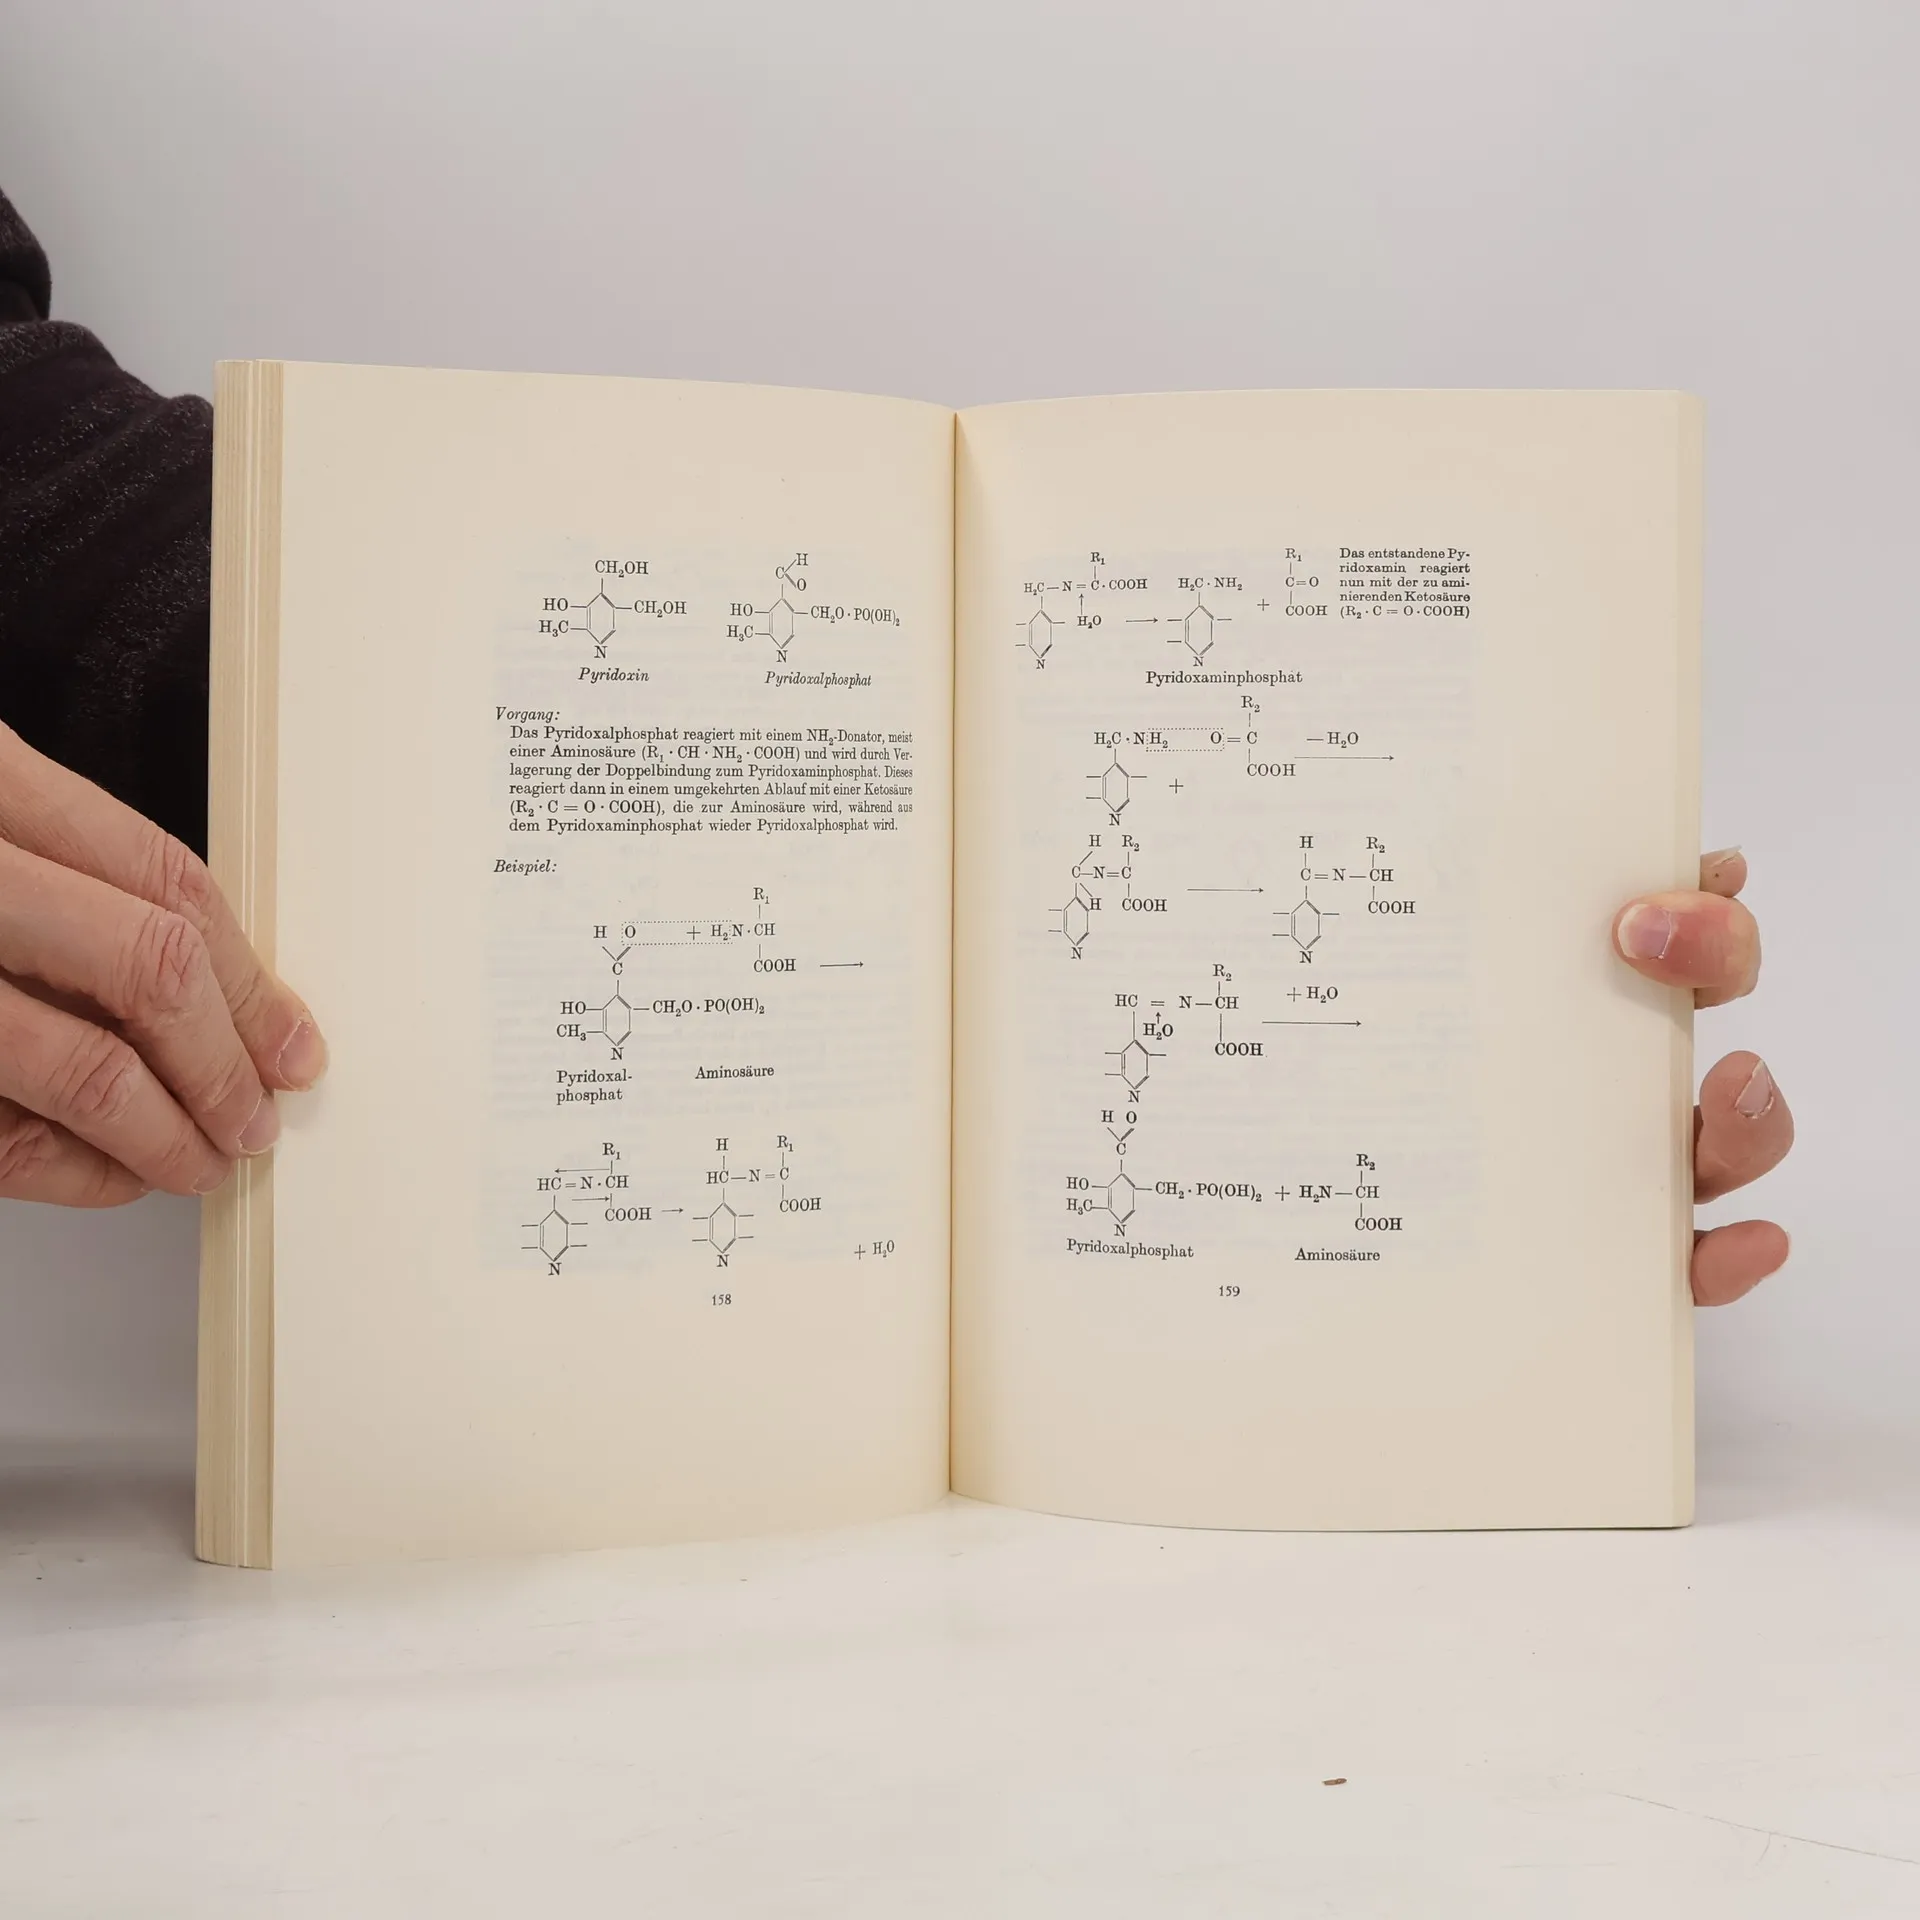 CH₂OH
HO— —CH₂OH
H₃C—
N
Pyridoxin
H
C
O
HO— —CH₂O · PO(OH)₂
H₃C—
N
Pyridoxalphosphat
Vorgang:
Das Pyridoxalphosphat reagiert mit einem NH₂-Donator, meist
einer Aminosäure (R₁ · CH · NH₂ · COOH) und wird durch Ver-
lagerung der Doppelbindung zum Pyridoxaminphosphat. Dieses
reagiert dann in einem umgekehrten Ablauf mit einer Ketosäure
(R₂ · C = O · COOH), die zur Aminosäure wird, während aus
dem Pyridoxaminphosphat wieder Pyridoxalphosphat wird.
Beispiel:
R₁
H O + H₂N · CH
C COOH →
HO— —CH₂O · PO(OH)₂
CH₃—
N
Pyridoxal-
phosphat
Aminosäure
R₁
HC = N · CH
COOH →
N
H R₁
HC—N = C
COOH
N
+ H₂O
158
R₁
H₂C—N = C · COOH
H₂O →
N
H₂C · NH₂
N
+
R₁
C=O
COOH
Das entstandene Py-
ridoxamin reagiert
nun mit der zu ami-
nierenden Ketosäure
(R₂ · C = O · COOH)
Pyridoxaminphosphat
R₂
H₂C · NH₂ O = C —H₂O
COOH →
+
N
H R₂
C—N=C
H COOH →
N
H R₂
C=N—CH
COOH
N
R₂
HC = N—CH + H₂O
H₂O →
COOH
N
H O
C
HO— —CH₂ · PO(OH)₂ +
H₃C—
N
R₂
H₂N—CH
COOH
Pyridoxalphosphat Aminosäure
159